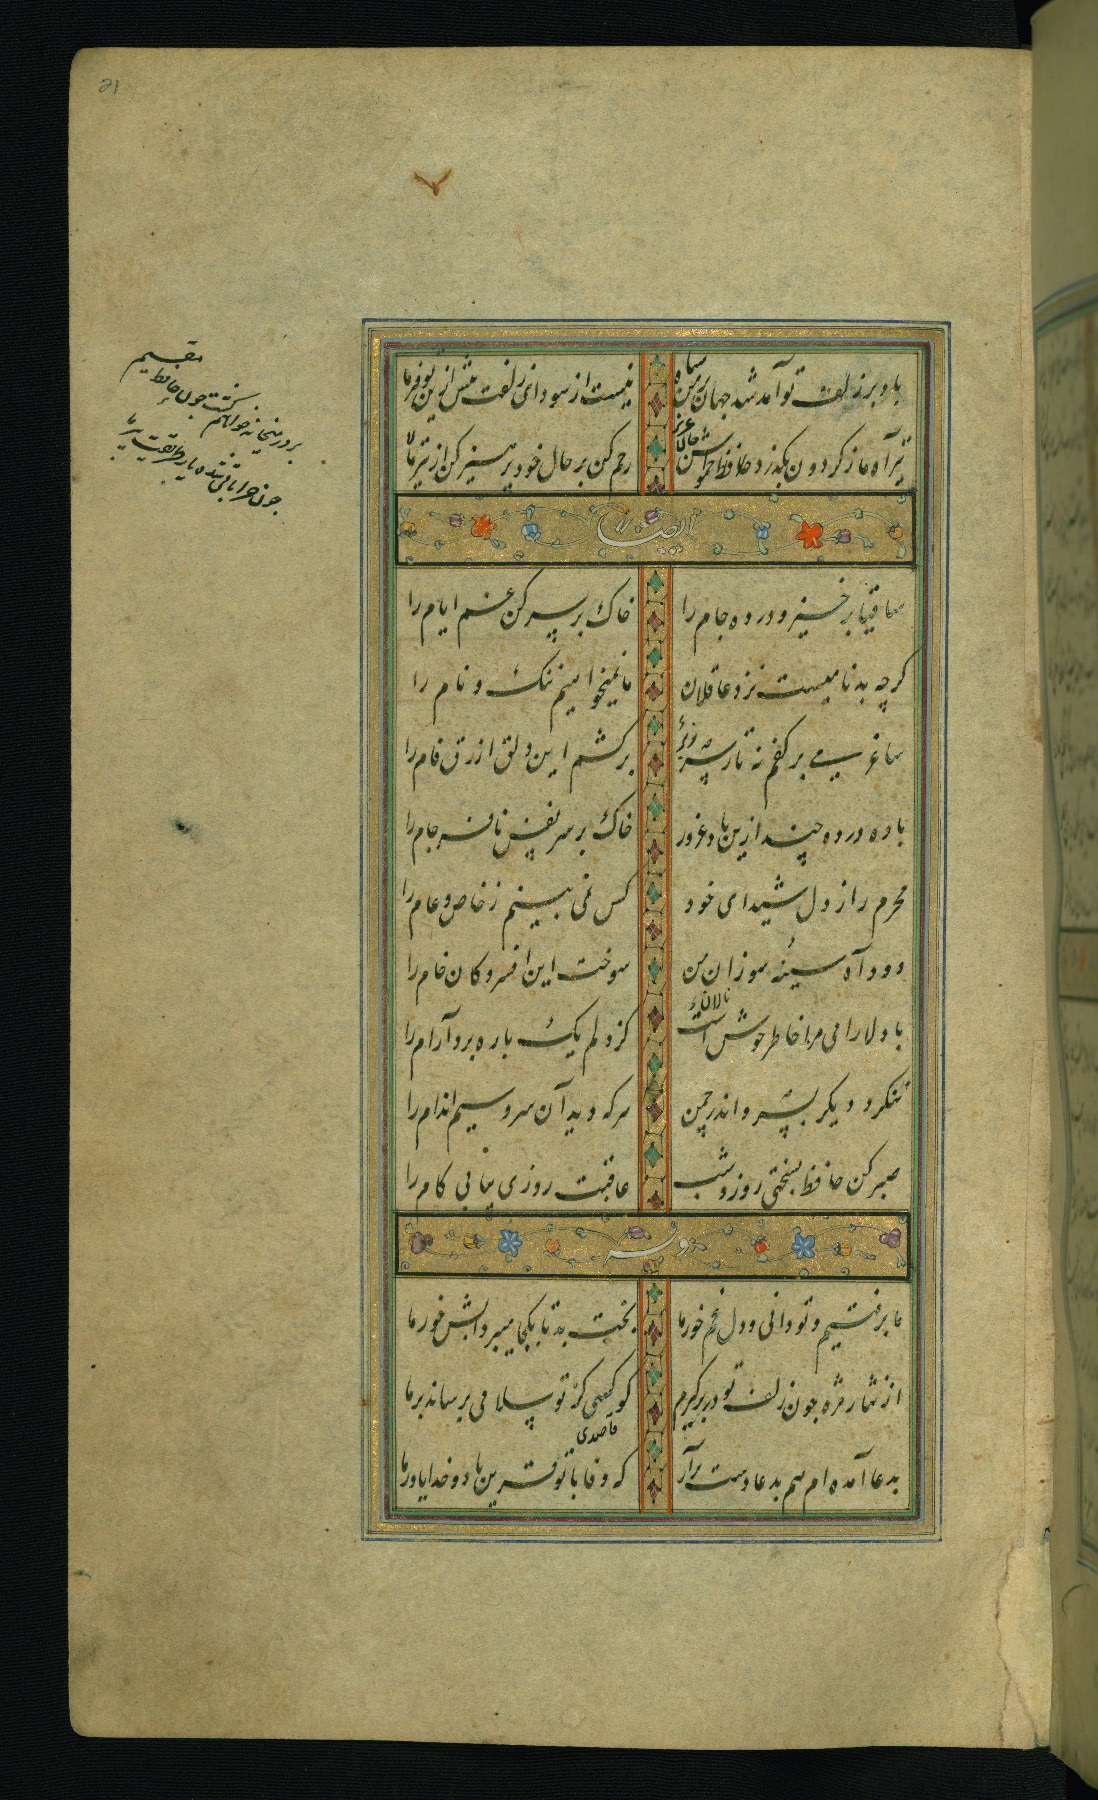 باد بر زلف تو آمد شد جهان بر من سیاه
نیست از سودای زلفت بیش ازین توفیر ما
تیر آه ما ز گردون بگذرد حافظ خموش
رحم کن بر حال خود پرهیز کن از تیر ما
ایضا له
ساقیا برخیز و درده جام را
خاک بر سر کن غم ایام را
گرچه بدنامیست نزد عاقلان
ما نمیخواهیم ننگ و نام را
ساغر می بر کفم نه تا ز سر
برکشم این دلق ازرق فام را
باده درده چند ازین باد غرور
خاک بر سر نفس نافرجام را
محرم راز دل شیدای خود
کس نمی بینم ز خاص و عام را
دود آه سینهٔ سوزان من
سوخت این افسردکان خام را
با دلارامی مرا خاطر خوش است
کز دلم یک باره برد آرام را
ننکرد دیکر بسرو اندر چمن
هر که دید آن سرو سیم اندام را
صبر کن حافظ بسختی روز و شب
عاقبت روزی بیابی کام را
وله
ما برفتیم و تو دانی و دل غم خور ما
بخت بد تا بکجا میبرد آبش خور ما
از نثار مژه چون زلف تو در بر کیرم
قاصدی کز تو سلامی برساند بر ما
بدعا آمده ام هم بدعا دست برآر
که وفا با تو قرین باد و خدا یاور ما
مقیم
بر در میخانه خواهم گشت چون حافظ
چون خراباتی شد ای یار طریقت پیر ما